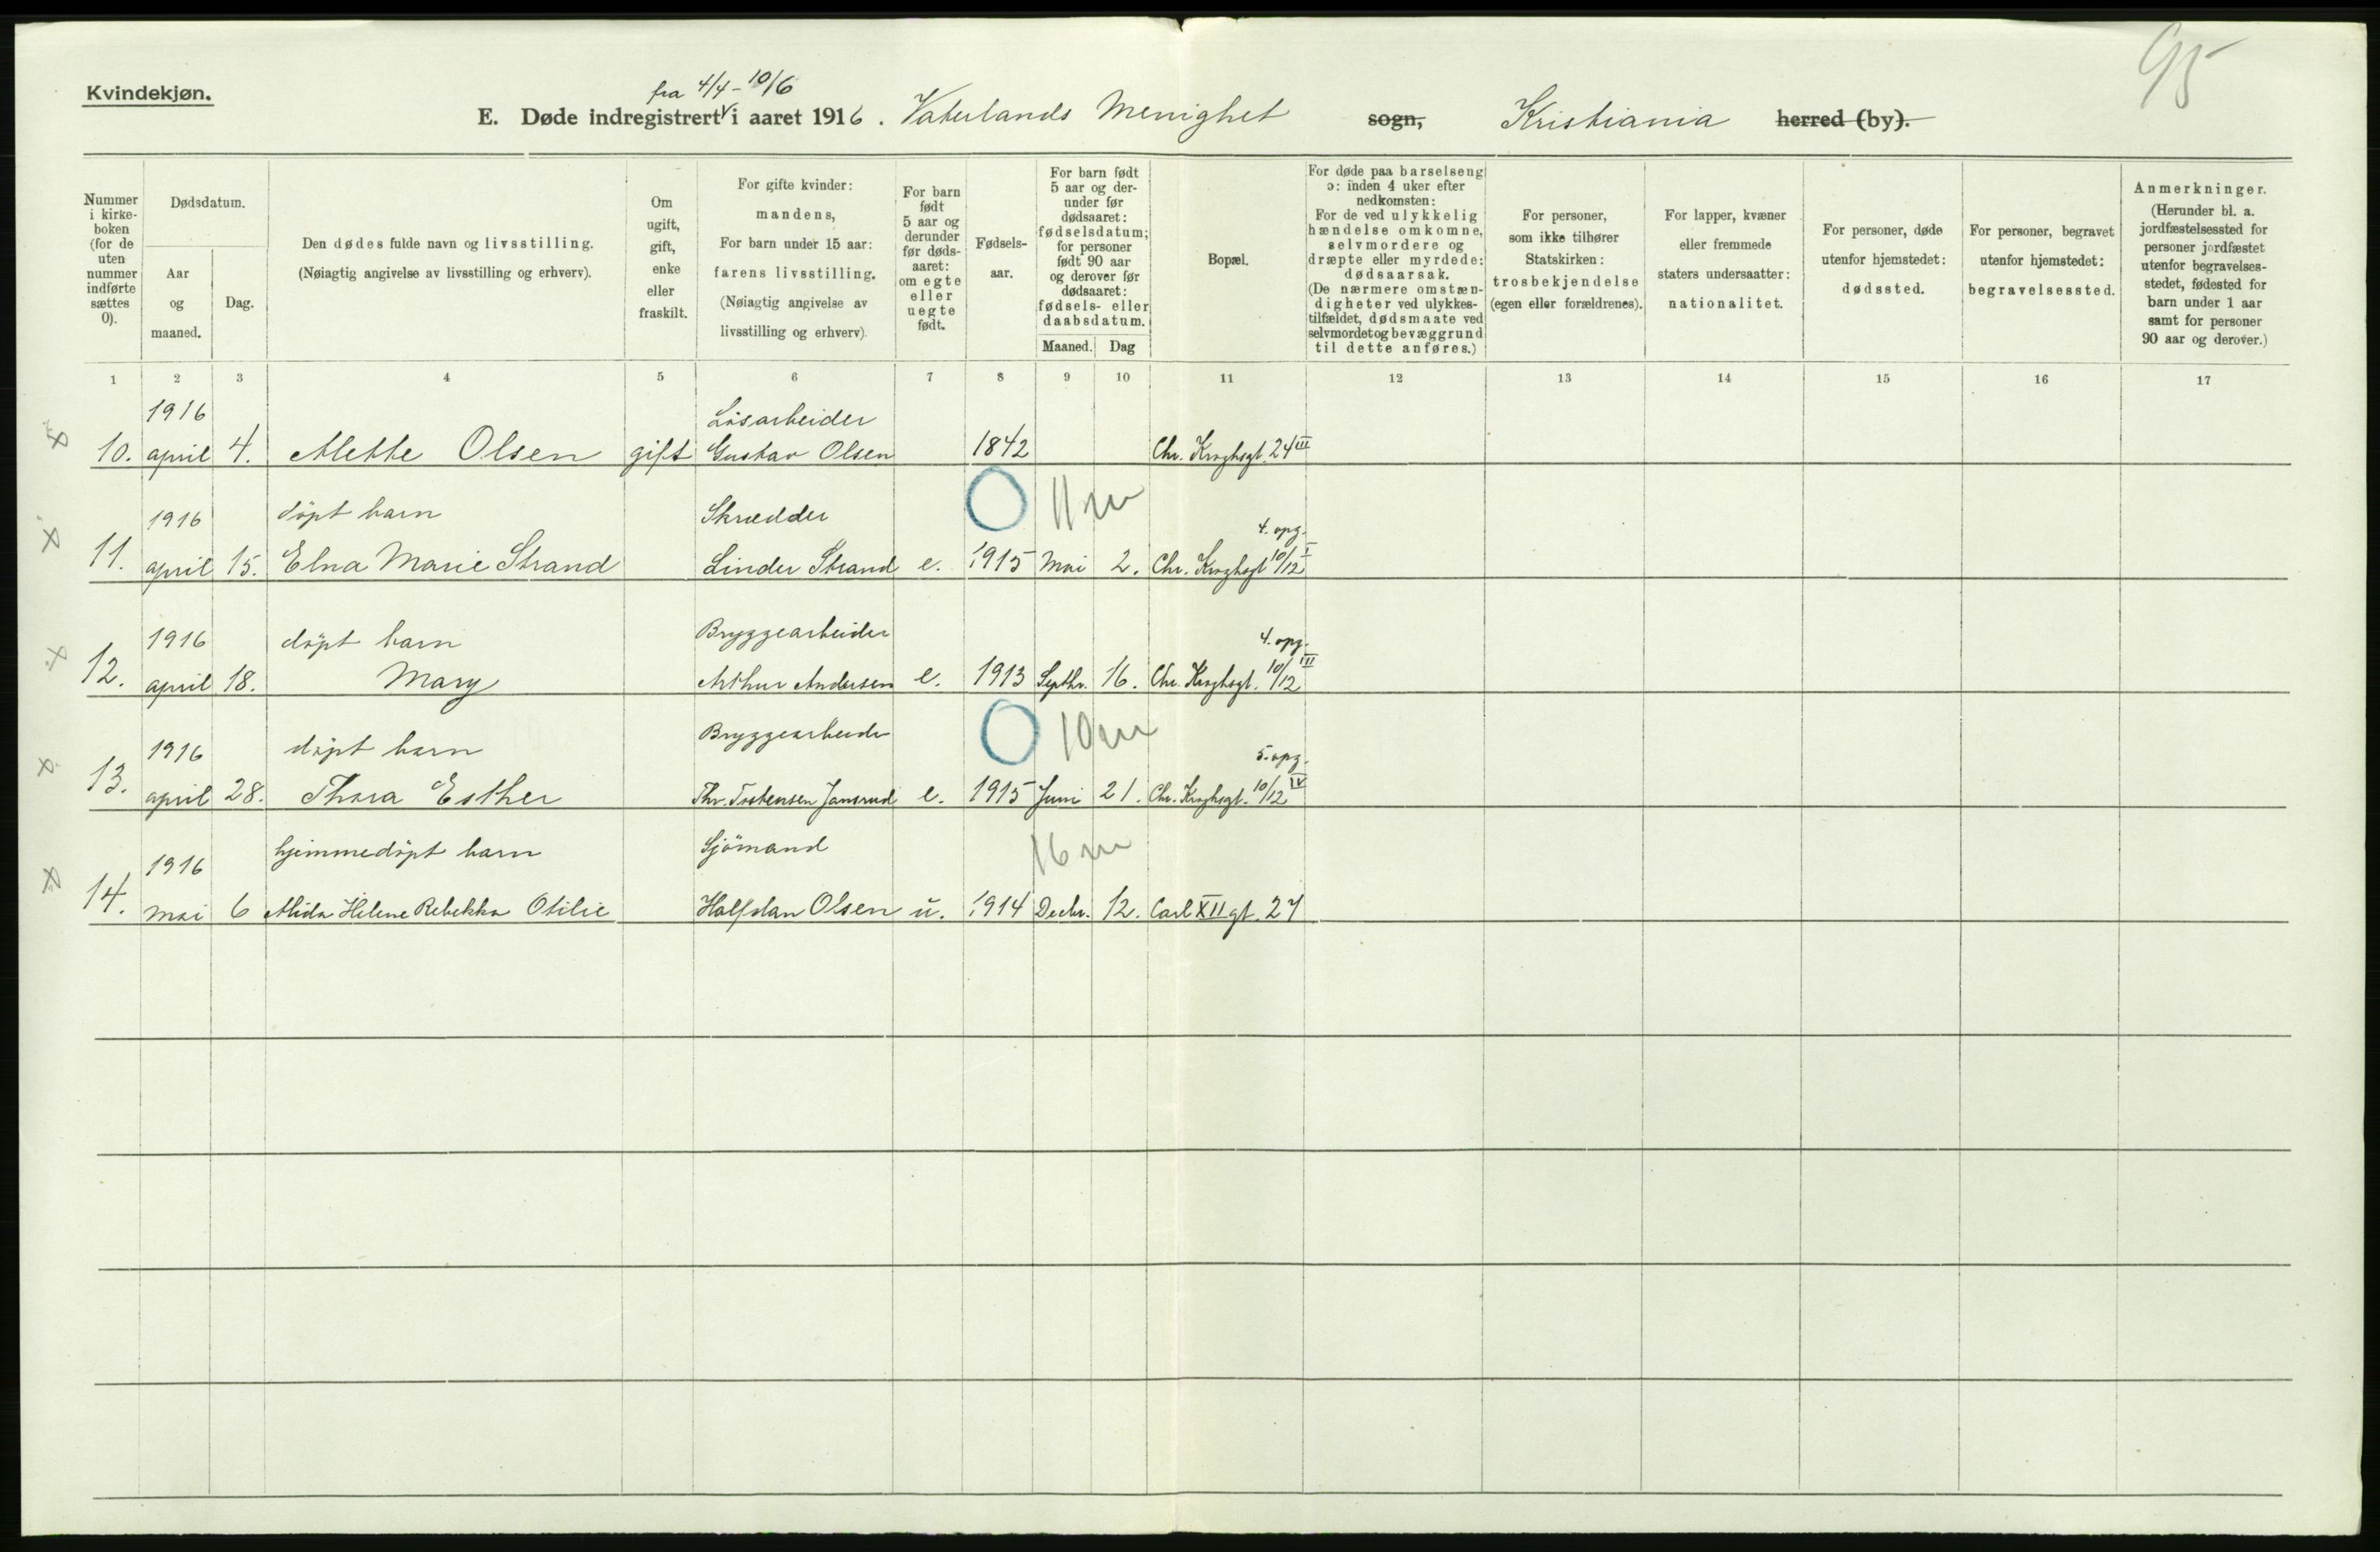 95
Kvindekjøn.
fra 4/4 - 10/6
E. Døde indregistrert i aaret 1916. Vaterlands Menighet sogn, Kristiania herred (by).
Nummer i kirke-
boken
(for de
uten
nummer
indførte
sættes
0).
Dødsdatum.
Aar
og
maaned.
Dag.
Den dødes fulde navn og livsstilling.
(Nøiagtig angivelse av livsstilling og erhverv).
Om
ugift,
gift,
enke
eller
fraskilt.
For gifte kvinder:
mandens,
For barn under 15 aar:
farens livsstilling.
(Nøiagtig angivelse av
livsstilling og erhverv).
For barn
født
5 aar og
derunder
før døds-
aaret:
om egte
eller
uegte
født.
Fødsels-
aar.
For barn født
5 aar og der-
under før
dødsaaret:
fødselsdatum;
for personer
født 90 aar
og derover før
dødsaaret:
fødsels- eller
daabsdatum.
Maaned. Dag
Bopæl.
For døde paa barselseng
ɔ: inden 4 uker efter
nedkomsten:
For de ved ulykkelig
hændelse omkomne,
selvmordere og
dræpte eller myrdede:
dødsaarsak.
(De nærmere omstæn-
digheter ved ulykkes-
tilfældet, dødsmaate ved
selvmordet og bevæggrund
til dette anføres.)
For personer,
som ikke tilhører
Statskirken:
trosbekjendelse
(egen eller forældrenes).
For lapper, kvæner
eller fremmede
staters undersaatter:
nationalitet.
For personer, døde
utenfor hjemstedet:
dødssted.
For personer, begravet
utenfor hjemstedet:
begravelsessted.
Anmerkninger.
(Herunder bl. a.
jordfæstelsessted for
personer jordfæstet
utenfor begravelses-
stedet, fødested for
barn under 1 aar
samt for personer
90 aar og derover.)
1 2 3 4 5 6 7 8 9 10 11 12 13 14 15 16 17
1916 Løsarbeider
10. april 4. Alette Olsen gift Gustav Olsen 1842 Chr. Kroghsgt. 24 III
1916 døpt barn Skrædder 0 11 m 4. opg.
11. april 15. Elna Marie Strand Linder Strand e. 1915 Mai 2. Chr. Kroghsgt 10/12 I
1916 døpt barn Bryggearbeider 4. opg.
12. april 18. Mary Arthur Andersen e. 1913 Septbr. 16. Chr. Kroghsgt. 10/12 III
1916 døpt barn Bryggearbeider 0 10 m 5. opg.
13. april 28. Thora Esther Thv. Torstensen Jansrud e. 1915 Juni 21. Chr. Kroghsgt. 10/12 IV
1916 hjemmedøpt barn Sjömand 16 m
14. mai 6 Alida Helene Rebekka Otilie Halfdan Olsen u. 1914 Decbr. 12. Carl XII gt. 27